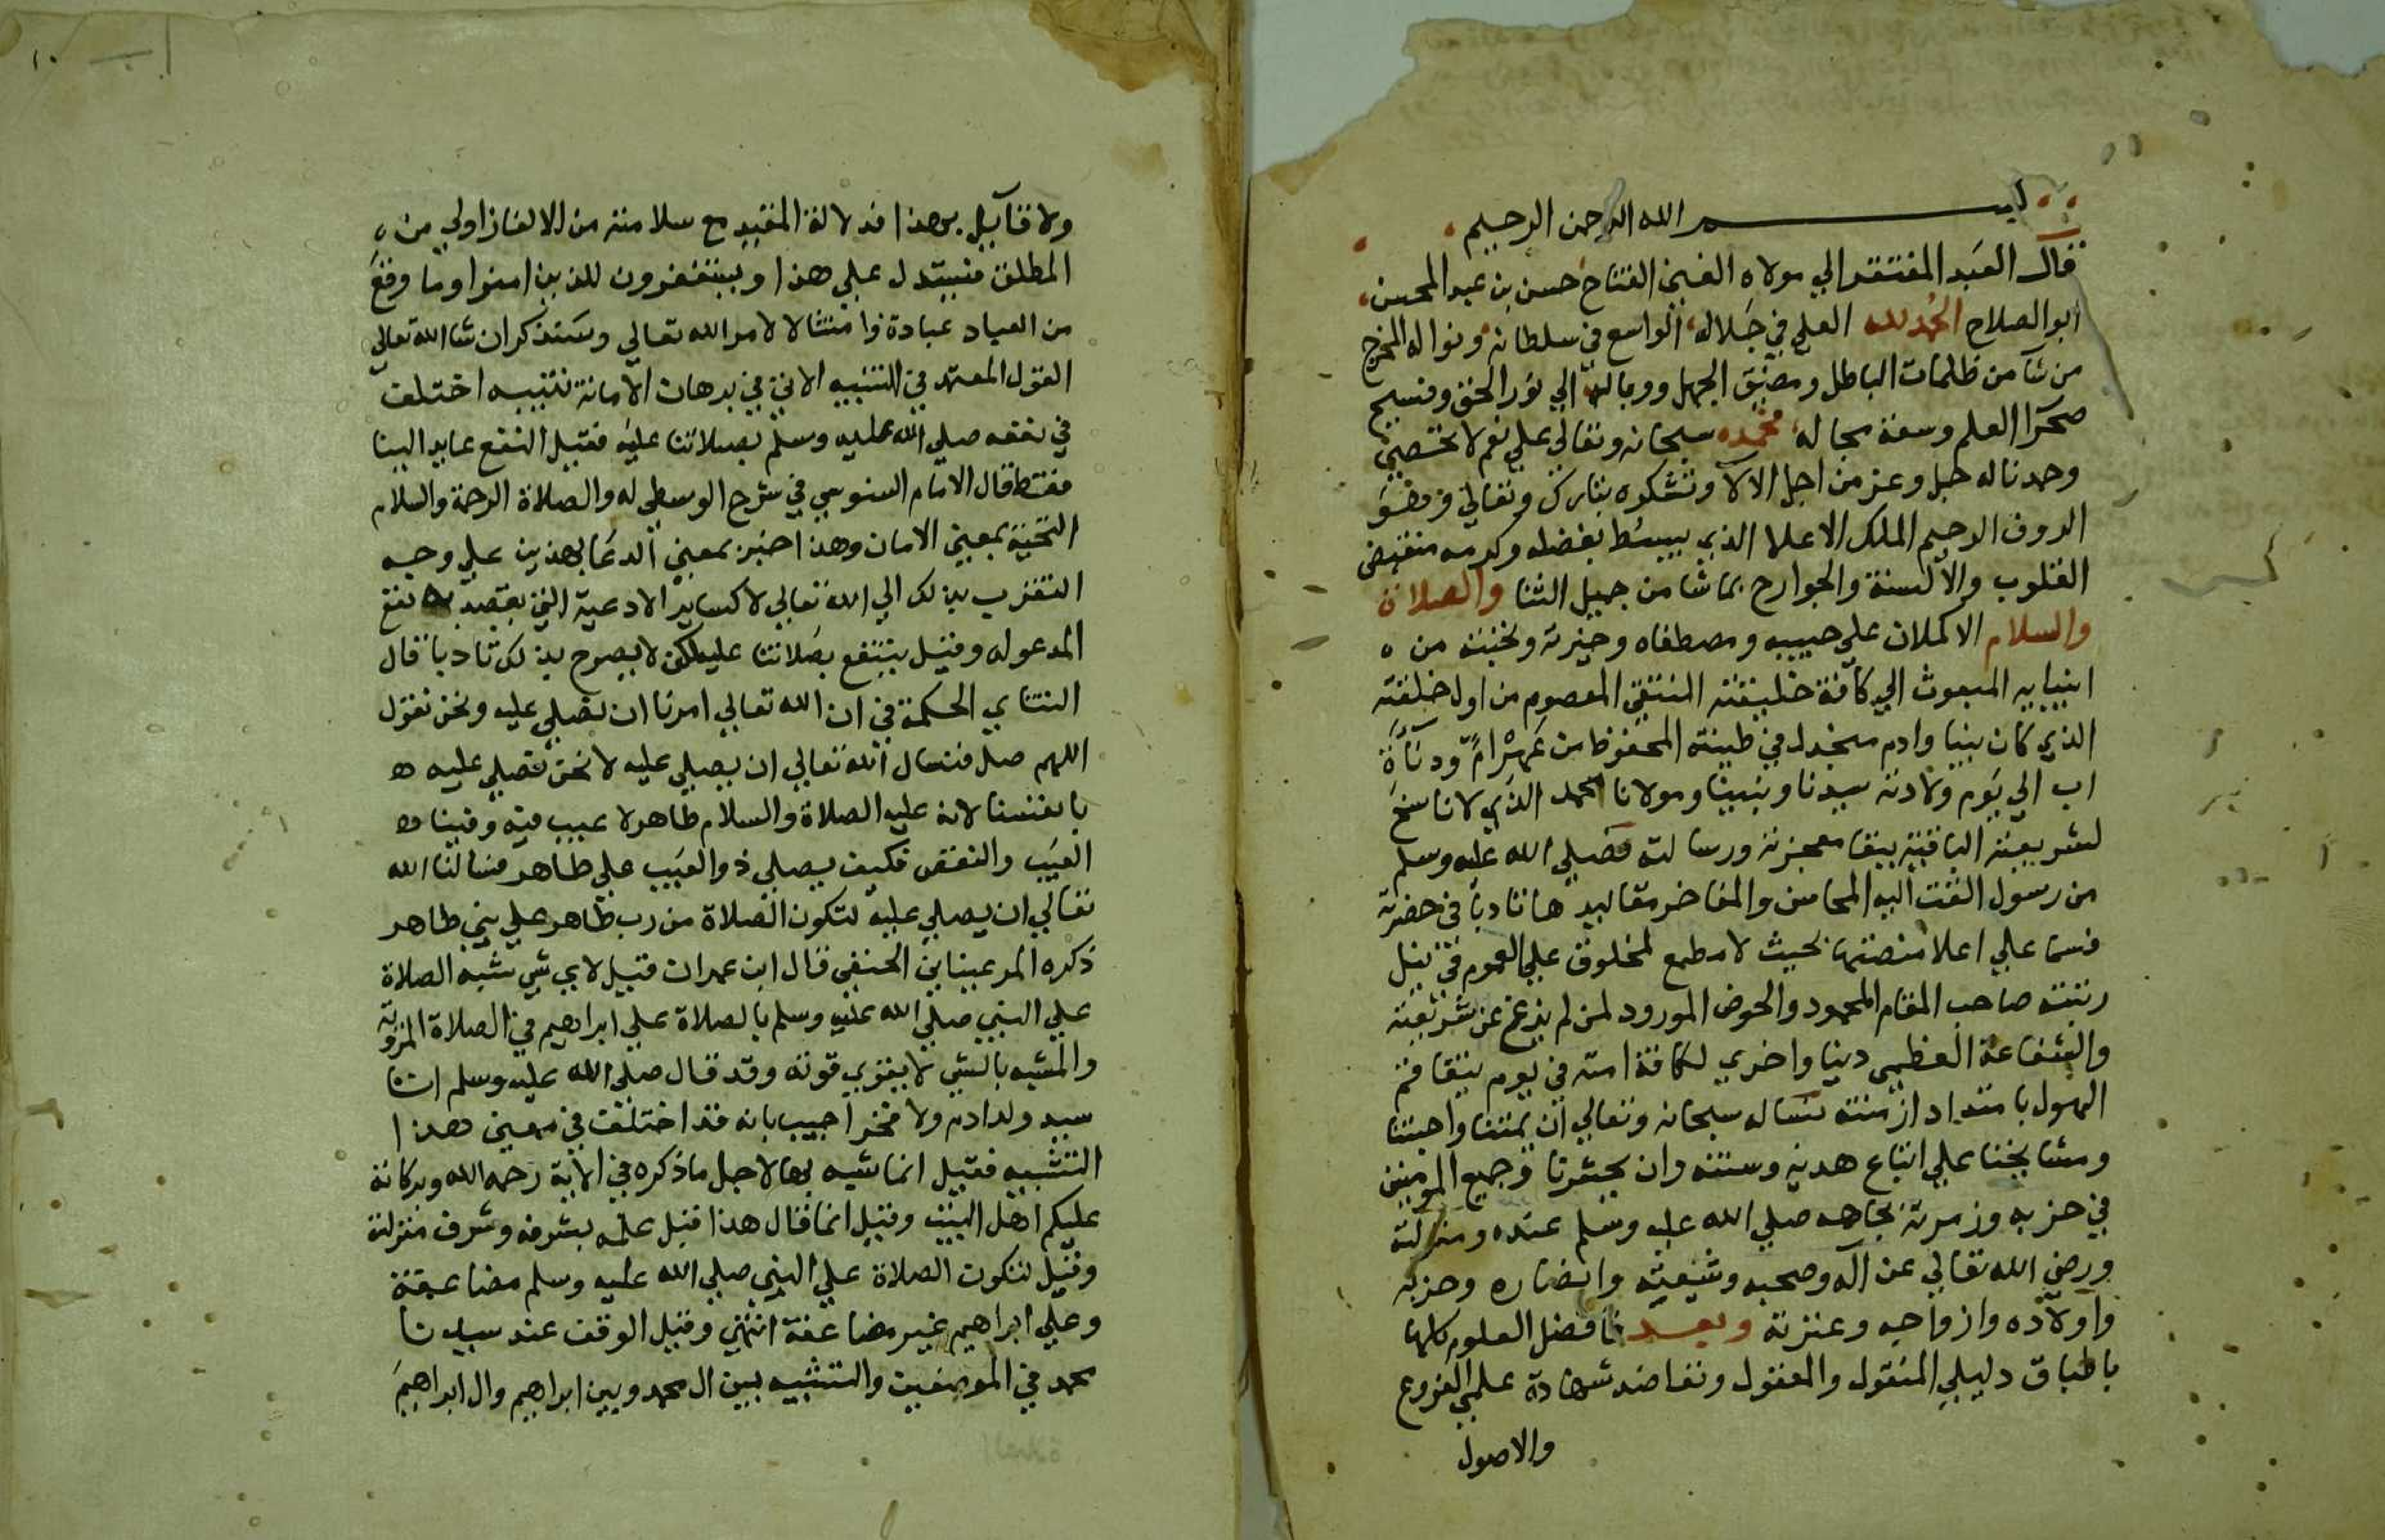 بسم الله الرحمن الرحيم
قال العبد المفتقر الي مولاه الغني الفتاح حسن بن عبد المحسن
ابو الصلاح الحمد لله العلي في جلاله الواسع في سلطانه ونواله المخرج
من شا من ظلمات الباطل ومضيق الجهل ووباله الي نور الحق وفسيح
صحرا العلم وسعة مجاله نحمده سبحانه وتعالي علي نعم لا تحتصي
وحمدنا له جل وعز من اجل الالا ونشكره تبارك وتعالي وهو
الروف الرحيم الملك الاعلا الذي يبسط بفضله وكرمه منقبض
القلوب والالسنة والجوارح بما شا من جميل الثنا والصلاة
والسلام الاكملان علي حبيبه ومصطفاه وخيرته ونخبته من
انبيايه المبعوث الي كافة خليقته المنتقي المعصوم من اول خلقته
الذي كان نبيا وادم منجدل في طينته المحفوظ من عهر ام ودناة
اب الي يوم ولادته سيدنا ونبينا ومولانا محمد الذي لا ناسخ
لشريعته الباقية ببقا معجزته ورسالته فصلي الله عليه وسلم
من رسول القت اليه المحاسن والمفاخر مقاليدها تادبا في حضرته
فسما علي اعلا منصتها بحيث لا مطمع لمخلوق علي العموم في نيل
رتبته صاحب المقام المحمود والحوض المورود لمن لم يزغ عن شريعته
والشفاعة العظمي دنيا واخري لكافة امته في يوم يتفاقم
الهول بامتداد ازمنته نساله سبحانه وتعالي ان يمتنا واحبتنا
ومشايخنا علي اتباع هديه وسنته وان يحشرنا وجميع المومنين
في حزبه وزمرته بجاهه صلي الله عليه وسلم عنده ومنزلته
ورضي الله تعالي عن آله وصحبه وشيعته وانصاره وحزبه
واولاده وازواجه وعترته وبعد فافضل العلوم كلها
باطباق دليلي المنقول والمعقول وتعاضد شهادة علمي الفروع
والاصول
ولا قايل بهذا فدلالة المقيد مع سلامته من الالغاز اولي من
المطلق فيستدل علي هذا ويستغفرون للذين امنوا وما وقع
من العباد عبادة وامتثالا لامر الله تعالي وسنذكر ان شا الله تعالي
القول المعتمد في التنبيه الاتي في برهان الامانة تنبيه اختلف
في نفعه صلي الله عليه وسلم بصلاتنا عليه فقيل النفع عايد الينا
فقط قال الامام السنوسي في شرح الوسطي له والصلاة الرحمة والسلام
التحية بمعني الامان وهذا خبر بمعني الدعا بهذين علي وجه
التقرب بذلك الي الله تعالي لا كساير الادعية التي يقصد بها نفع
المدعو له وقيل ينتفع بصلاتنا عليه لكن لا يصرح بذلك تادبا قال
التتاي الحكمة في ان الله تعالي امرنا ان نصلي عليه ونحن نقول
اللهم صل فنسال الله تعالي ان يصلي عليه لا نحن نصلي عليه
بانفسنا لانه عليه الصلاة والسلام طاهر لا عيب فيه وفينا
العيب والنقص فكيف يصلي ذو العيب علي طاهر فسالنا الله
تعالي ان يصلي عليه لتكون الصلاة من رب طاهر علي نبي طاهر
ذكره المرعيناني الحنفي قال ابن عمران قيل لاي شي شبه الصلاة
علي النبي صلي الله عليه وسلم بالصلاة علي ابراهيم في الصلاة المروية
والمشبه بالشي لا يقوي قوته وقد قال صلي الله عليه وسلم انا
سيد ولد ادم ولا فخر اجيب بانه قد اختلفت في معني هذا
التشبيه فقيل انما شبه بها لاجل ما ذكره في الاية رحمه الله وبركاته
عليكم اهل البيت وقيل انما قال هذا قبل علمه بشرفه وشرف منزلته
وقيل لتكون الصلاة علي النبي صلي الله عليه وسلم مضاعفة
وعلي ابراهيم غير مضاعفة انتهي وقيل الوقف عند سيدنا
محمد في الموضعين والتشبيه بين ال محمد وبين ابراهيم وال ابراهيم